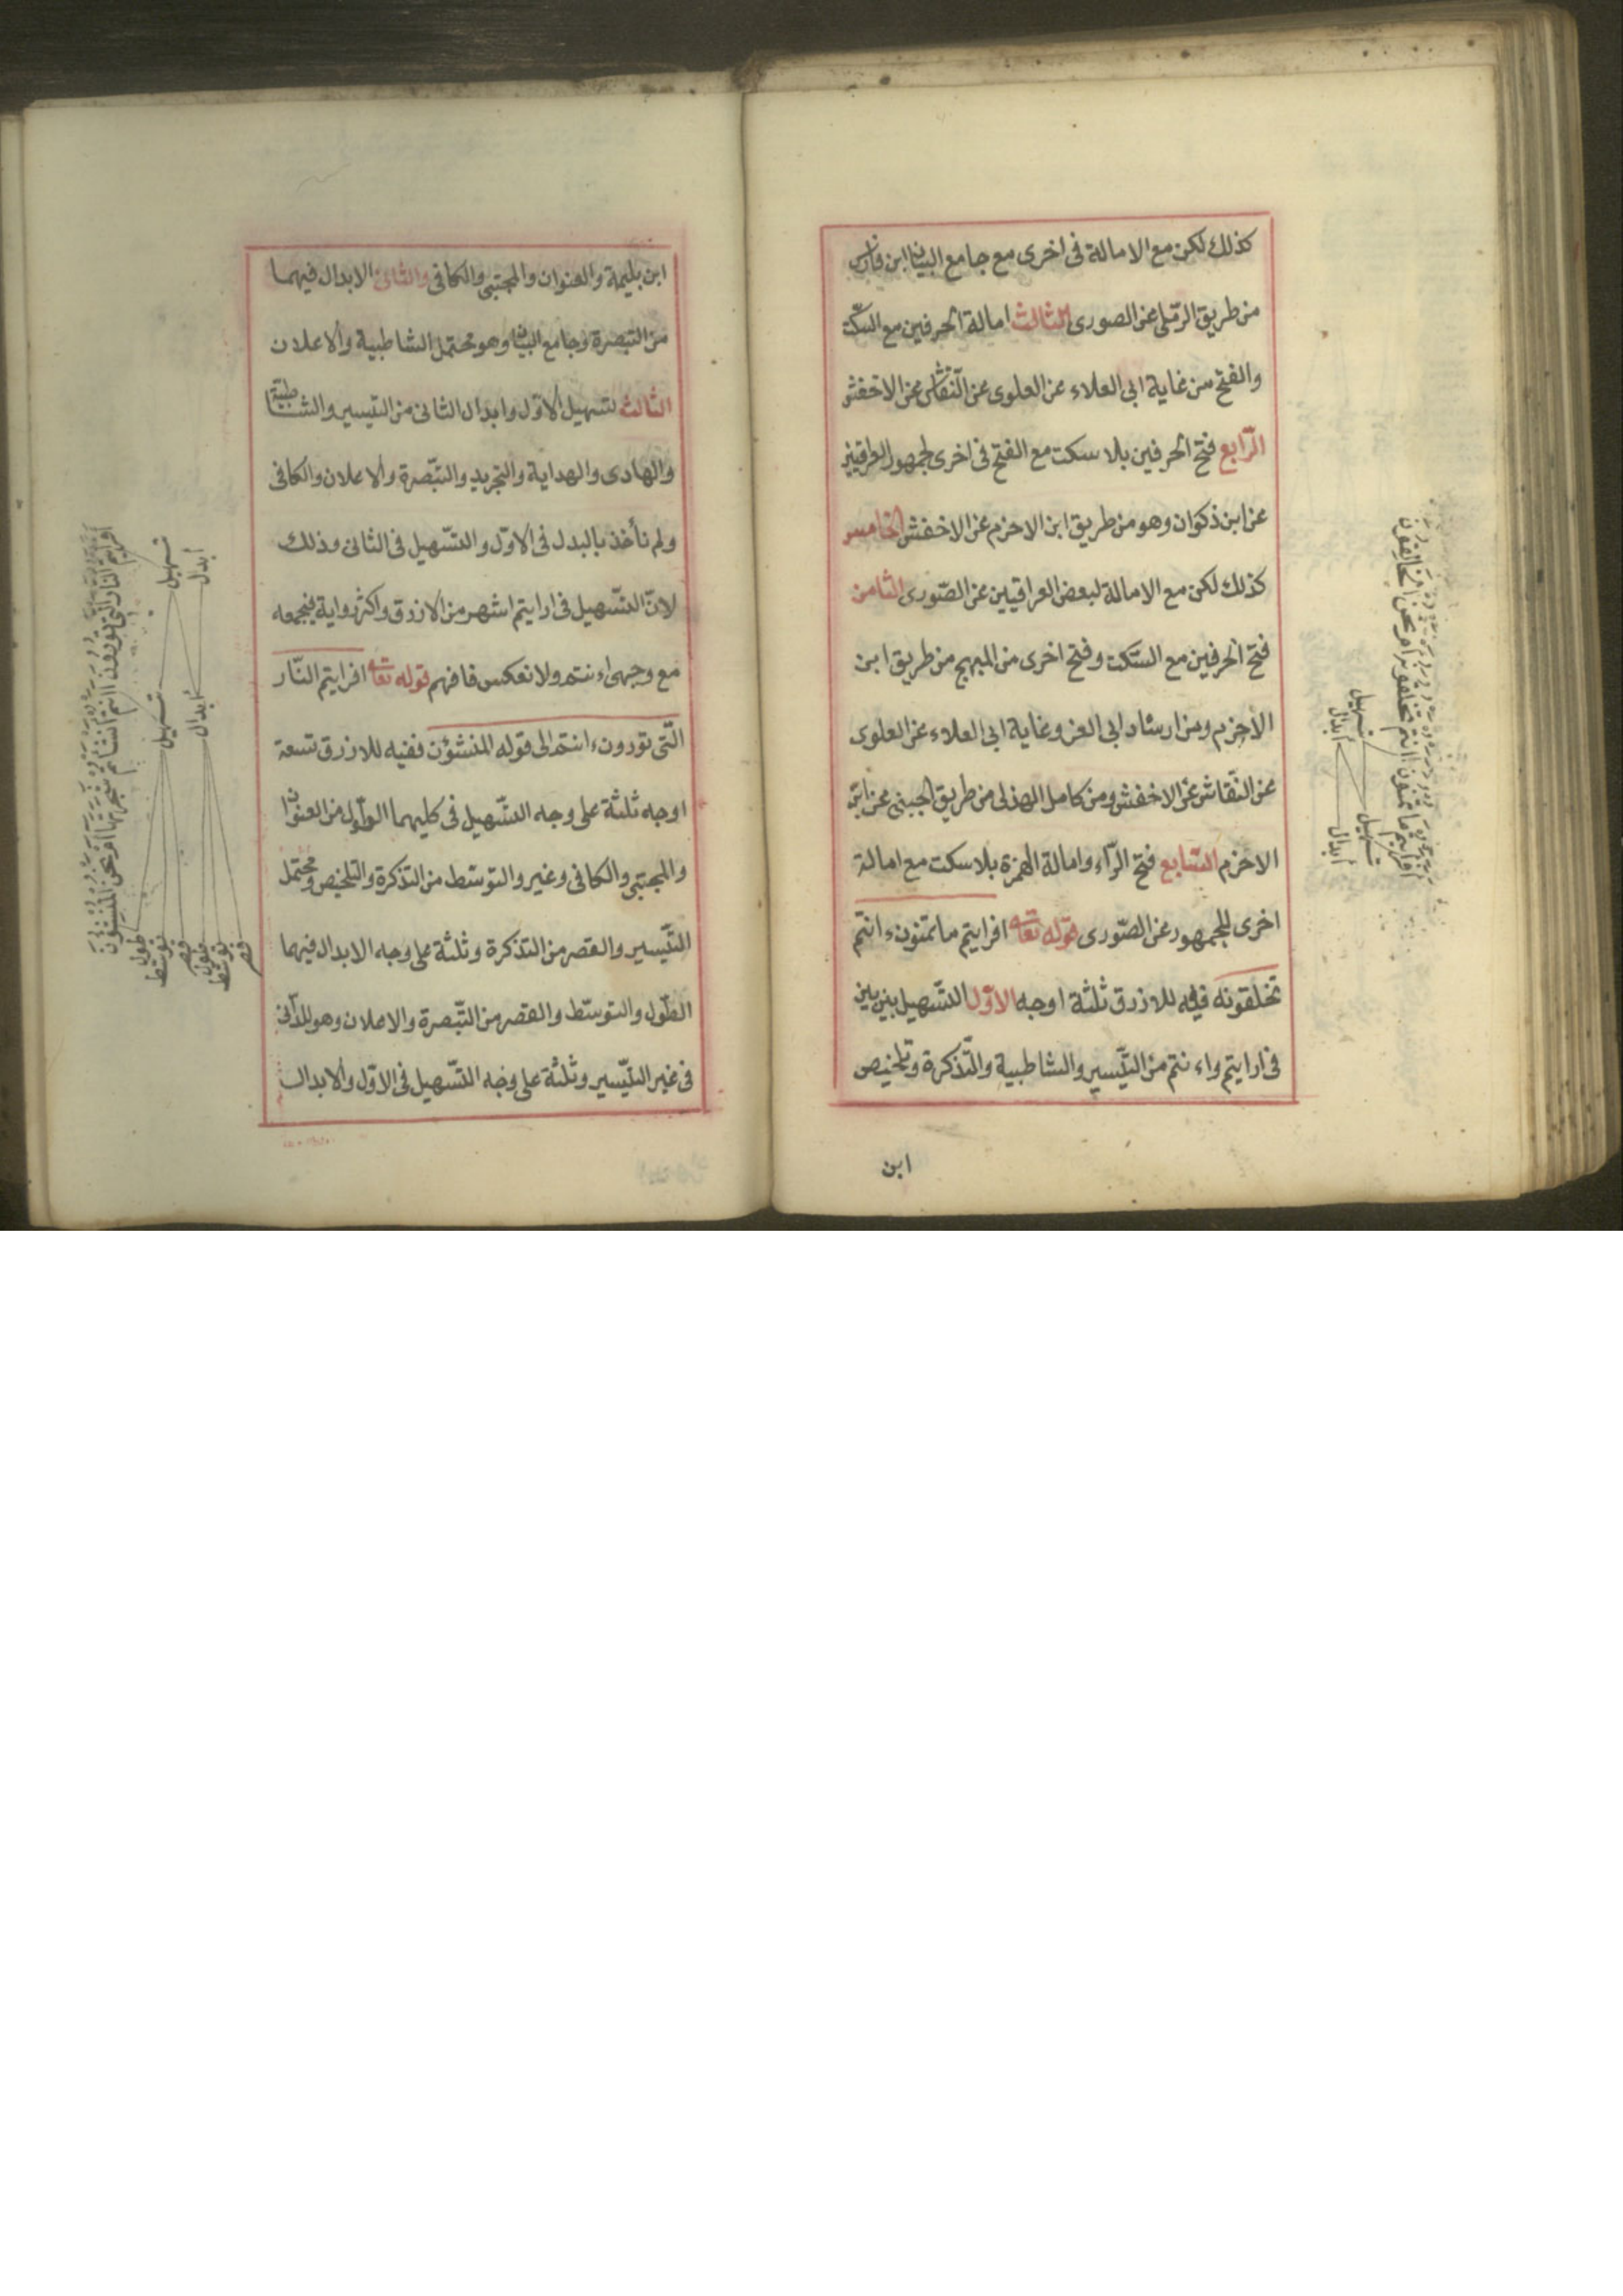 كذلك لكن مع الامالة فى اخرى مع جامع البيان ابن فارس
من طريق الرملى عن الصورى الثالث امالة الحرفين مع السكت
والفتح من غاية ابى العلاء عن العلوى عن النقاش عن الاخفش
الرّابع فتح الحرفين بلا سكت مع الفتح فى اخرى لجمهور العراقيين
عن ابن ذكوان وهو من طريق ابن الاخرم عن الاخفش الخامس
كذلك لكن مع الامالة لبعض العراقيين عن الصّورى الثامن
فتح الحرفين مع السّكت وفتح اخرى من المبهج من طريق ابن
الاخرم ومن ارشاد ابى العز وغاية ابى العلاء عن العلوى
عن النقّاش عن الاخفش ومن كامل الهذلى من طريق الجبنى عن ابن
الاخرم السّابع فتح الرّاء وامالة الهمزة بلا سكت مع امالة
اخرى للجمهور عن الصّورى قوله تعا افرايتم ما تمنون ءانتم
تخلقونه فيه للازرق ثلثة اوجه الاوّل التّسهيل بين بين
فى ارايتم واءنتم من التّيسير والشاطبية والتّذكرة وتلخيص
ابن
افرايتم ما تمنون ءانتم تخلقونه ام نحن الخالقون
تسهيل
ابدال
تسهيل
ابدال
ابن بليمة والعنوان والمجتبى والكافى والثانى الابدال فيهما
من التبصرة وجامع البيان وهو محتمل الشاطبية والاعلان
الثالث تسهيل الاوّل وابدال الثانى من التيسير والشاطبيّة
والهادى والهداية والتجريد والتّبصرة والاعلان والكافى
ولم نأخذ بالبدل فى الاوّل والتّسهيل فى الثانى وذلك
لانّ التّسهيل فى ارايتم اشهر من الازرق واكثر رواية فيجمعه
مع وجهى ءانتم ولا نعكس فافهم قوله تعا افرايتم النّار
الّتى تورون ءانتم الى قوله المنشؤن ففيه للازرق تسعة
اوجه ثلثة على وجه التّسهيل فى كليهما الطول من العنوان
والمجتبى والكافى وغير والتوسّط من التذكرة والتلخيص ومحتمل
التّيسير والقصر من التذكرة وثلثة على وجه الابدال فيهما
الطّول والتوسّط والقصر من التّبصرة والاعلان وهو للدّانى
فى غير التّيسير وثلثة على وجه التّسهيل فى الاوّل والابدال
افرايتم النار التى تورون ءانتم انشاتم شجرتها ام نحن المنشؤن
تسهيل
ابدال
تسهيل
ابدال
طول
توسّط
قصر
طول
توسّط
قصر